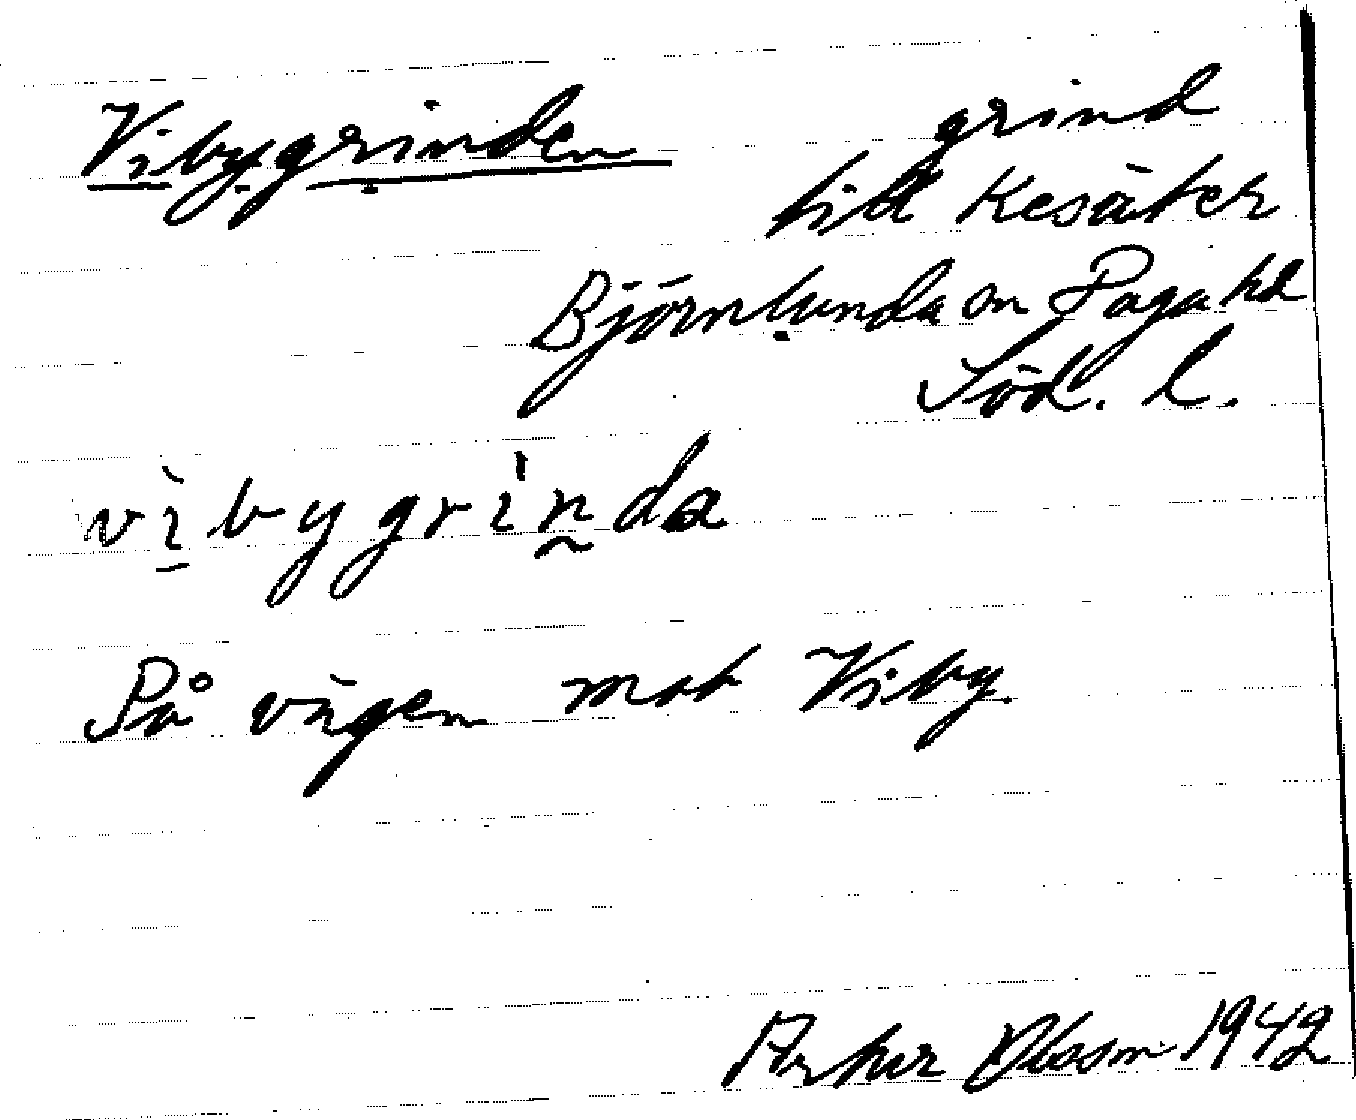 Vibygrinden grind
till Kesäter
Björnlunda sn Daga hd
Söd. l.
vìbygrìnda
På vägen mot Viby.
Artur Olsson 1942